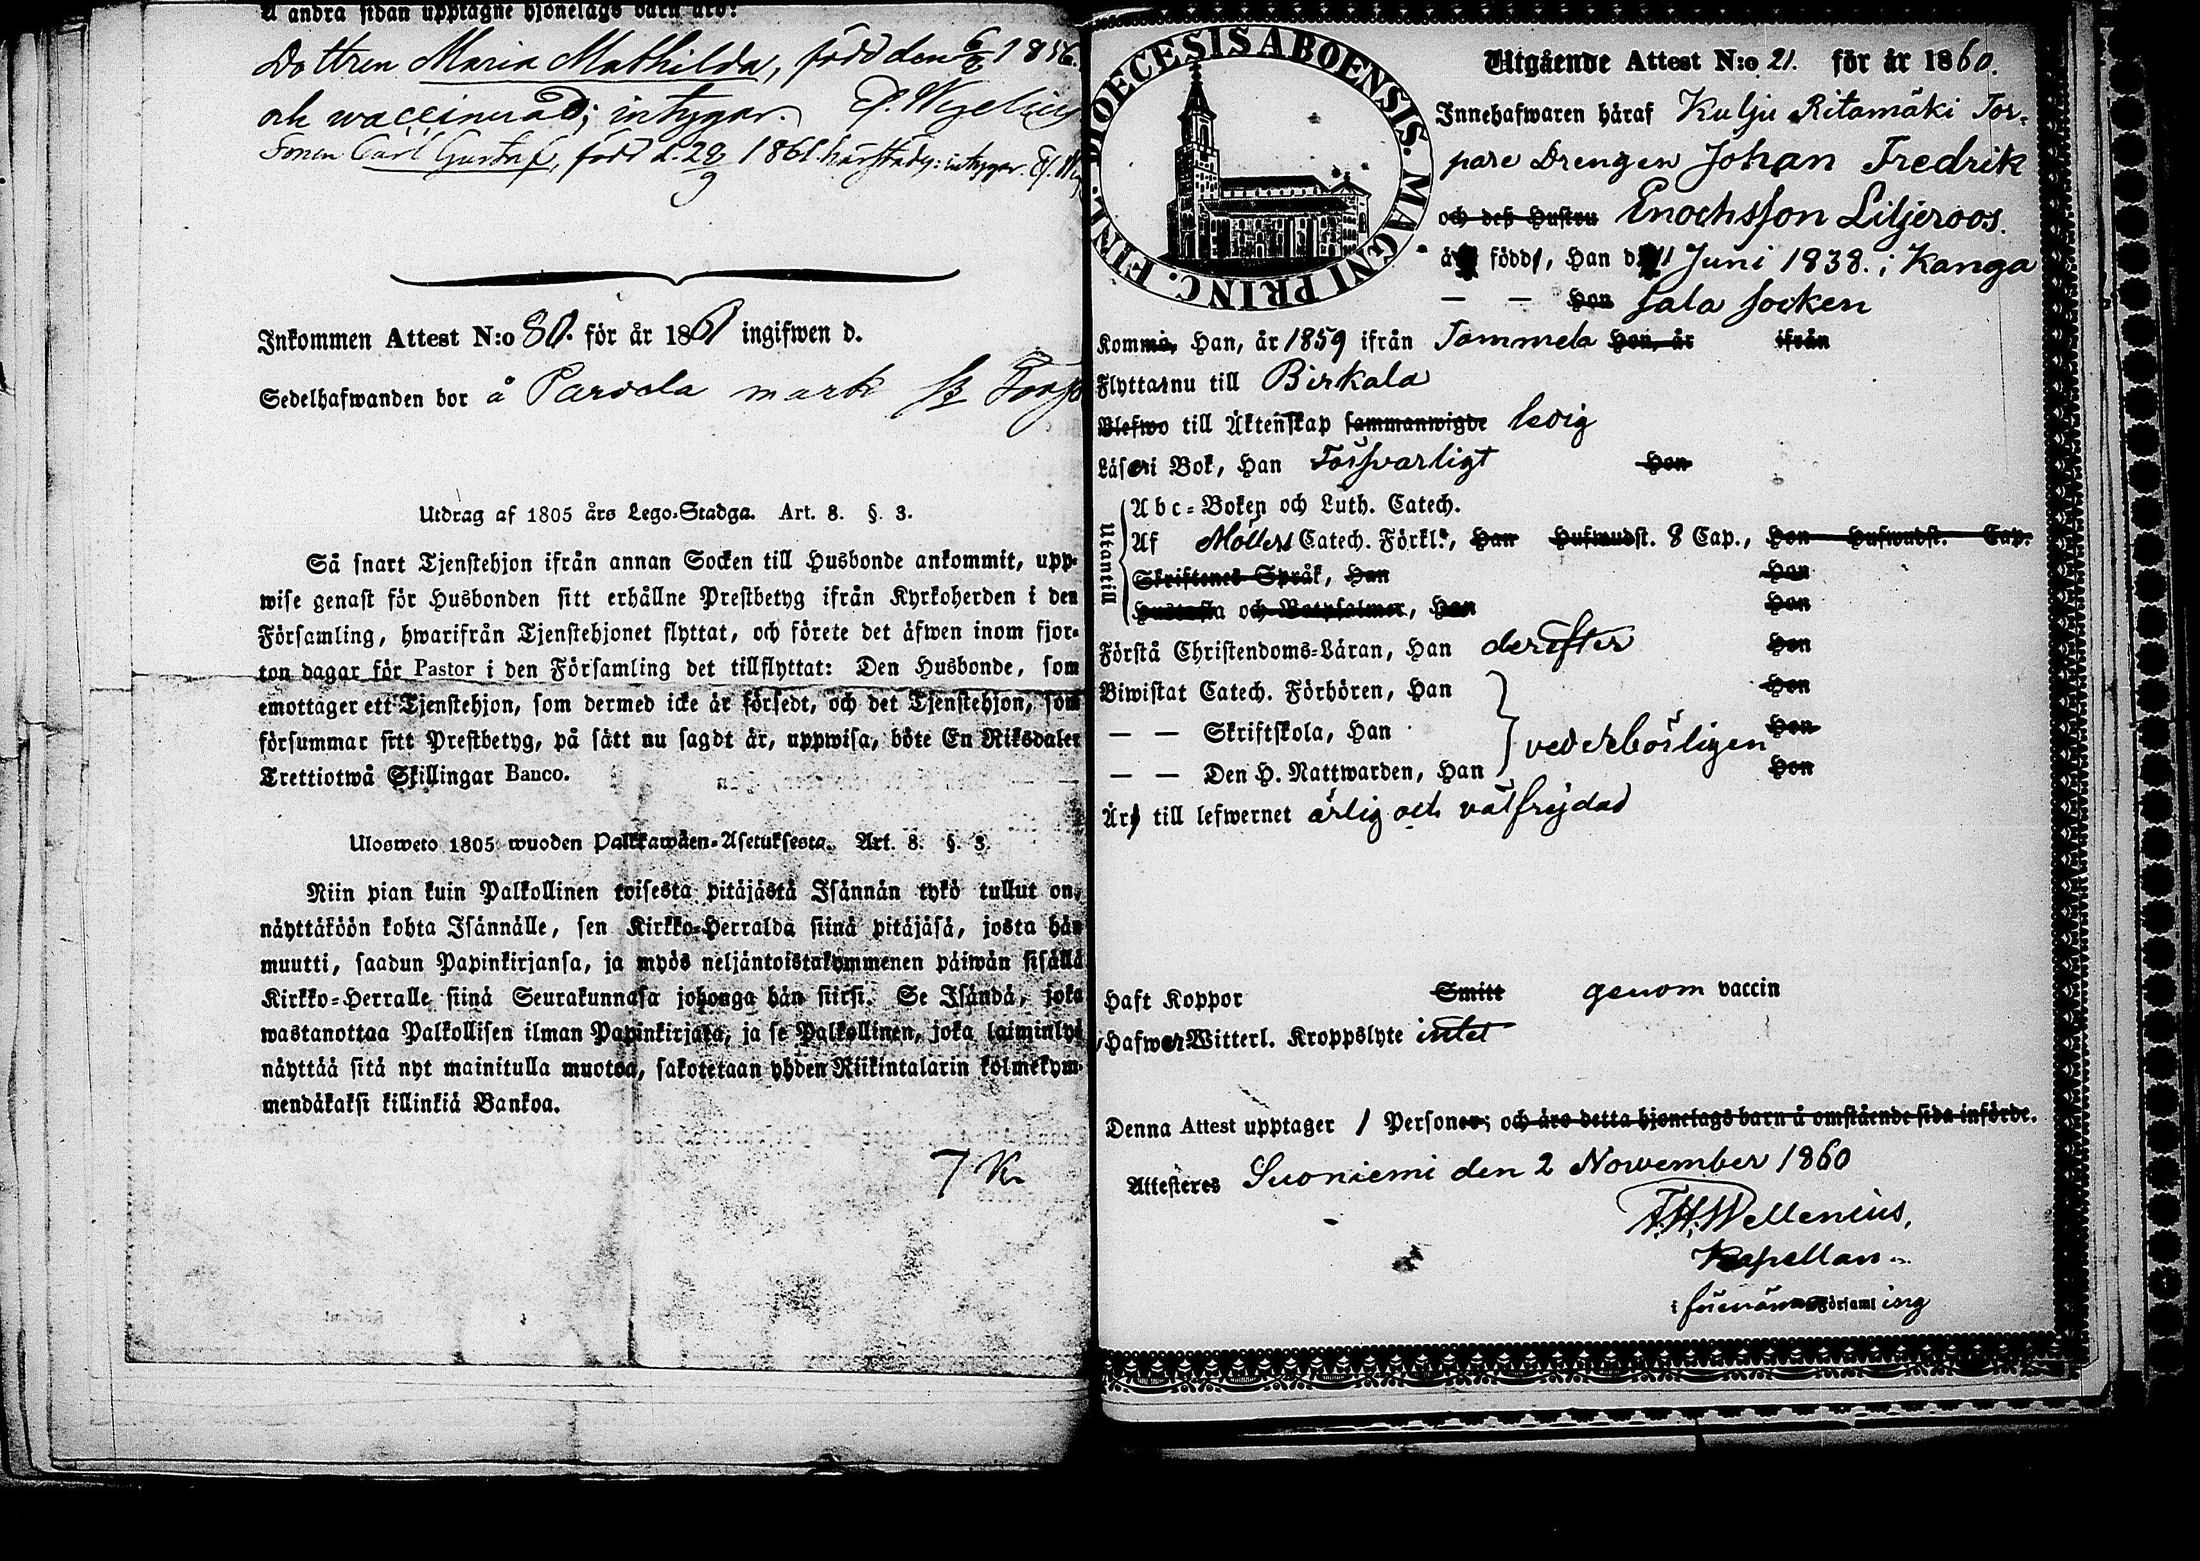 Å andra sidan upptagne hjonelags barn äro:
Dottren Maria Mathilda, född den 6/8 1856
och waccinerad; intygar. Wegelius
Sonen Carl Gustaf, född d. 28/9 1861 härstädes: intygar
Inkommen Attest N:o 80. för år 1861 ingifwen d.
Sedelhafwanden bor å Parvela mark
Utdrag af 1805 års Lego-Stadga. Art. 8. §. 3.
Så snart Tjenstehjon ifrån annan Socken till Husbonde ankommit, upp-
wise genast för Husbonden sitt erhållne Prestbetyg ifrån Kyrkoherden i den
Församling, hwarifrån Tjenstehjonet flyttat, och förete det äfwen inom fjor-
ton dagar för Pastor i den Församling det tillflyttat: Den Husbonde, som
emottager ett Tjenstehjon, som dermed icke är försedt, och det Tjenstehjon, som
försummar sitt Prestbetyg, på sätt nu sagdt är, uppwisa, böte En Riksdaler
Trettiotwå Skillingar Banco.
Ulosweto 1805 wuoden Palkkawäen-Asetuksesta. Art. 8. §. 3.
Niin pian kuin Palkollinen toisesta pitäjästä Isännän tykö tullut on,
näyttäköön kohta Isännälle, sen Kirkko-Herralda siinä pitäjäsä, josta hän
muutti, saadun Papinkirjansa, ja myös neljäntoistakymmenen päiwän sisällä
Kirkko-Herralle siinä Seurakunnasa johonga hän siirsi. Se Isändä, joka
wastanottaa Palkollisen ilman Papinkirjata, ja se Palkollinen, joka laiminlyö
näyttää sitä nyt mainitulla muotoa, sakotetaan yhden Riikintalarin kolmekym-
mendäkaksi killinkiä Bankoa.
7 K
DIOECESIS ABOENSIS. MAGNI PRINC. FINL.
Utgående Attest N:o 21. för år 1860.
Innehafwaren häraf Kulju Ritamäki Tor-
pare Drengen Johan Fredrik
och deß Hustru Enochsson Liljeroos.
är född, Han d. 11 Juni 1838. i Kanga
— — Hon sala socken
Komm Han, år 1859 ifrån Tammela Hon, år ifrån
Flyttar nu till Birkala
Blefwo till Äktenskap sammanwigde ledig
Läser i Bok, Han Försvarligt Hon
Utantill
Abc-Boken och Luth. Catech.
Af Möllers Catech. Förkl., Han Hufwudst. 8 Cap., Hon Hufwudst. Cap.
Skriftenes Språk, Han Hon
Hustafla och Botpsalmer, Han Hon
Förstå Christendoms-Läran, Han derefter Hon
Biwistat Catech. Förhören, Han Hon
— — Skriftskola, Han vederbörligen Hon
— — Den H. Nattwarden, Han Hon
Är till lefwernet ärlig och välfrejdad
Haft Koppor Smitt genom vaccin
Hafwer Witterl. Kroppslyte intet
Denna Attest upptager 1 Personer; och äro detta hjonelags barn å omstående sida införde.
Attesteres Suoniemi den 2 November 1860
F.H. Wellenius,
Kapellan
i församling